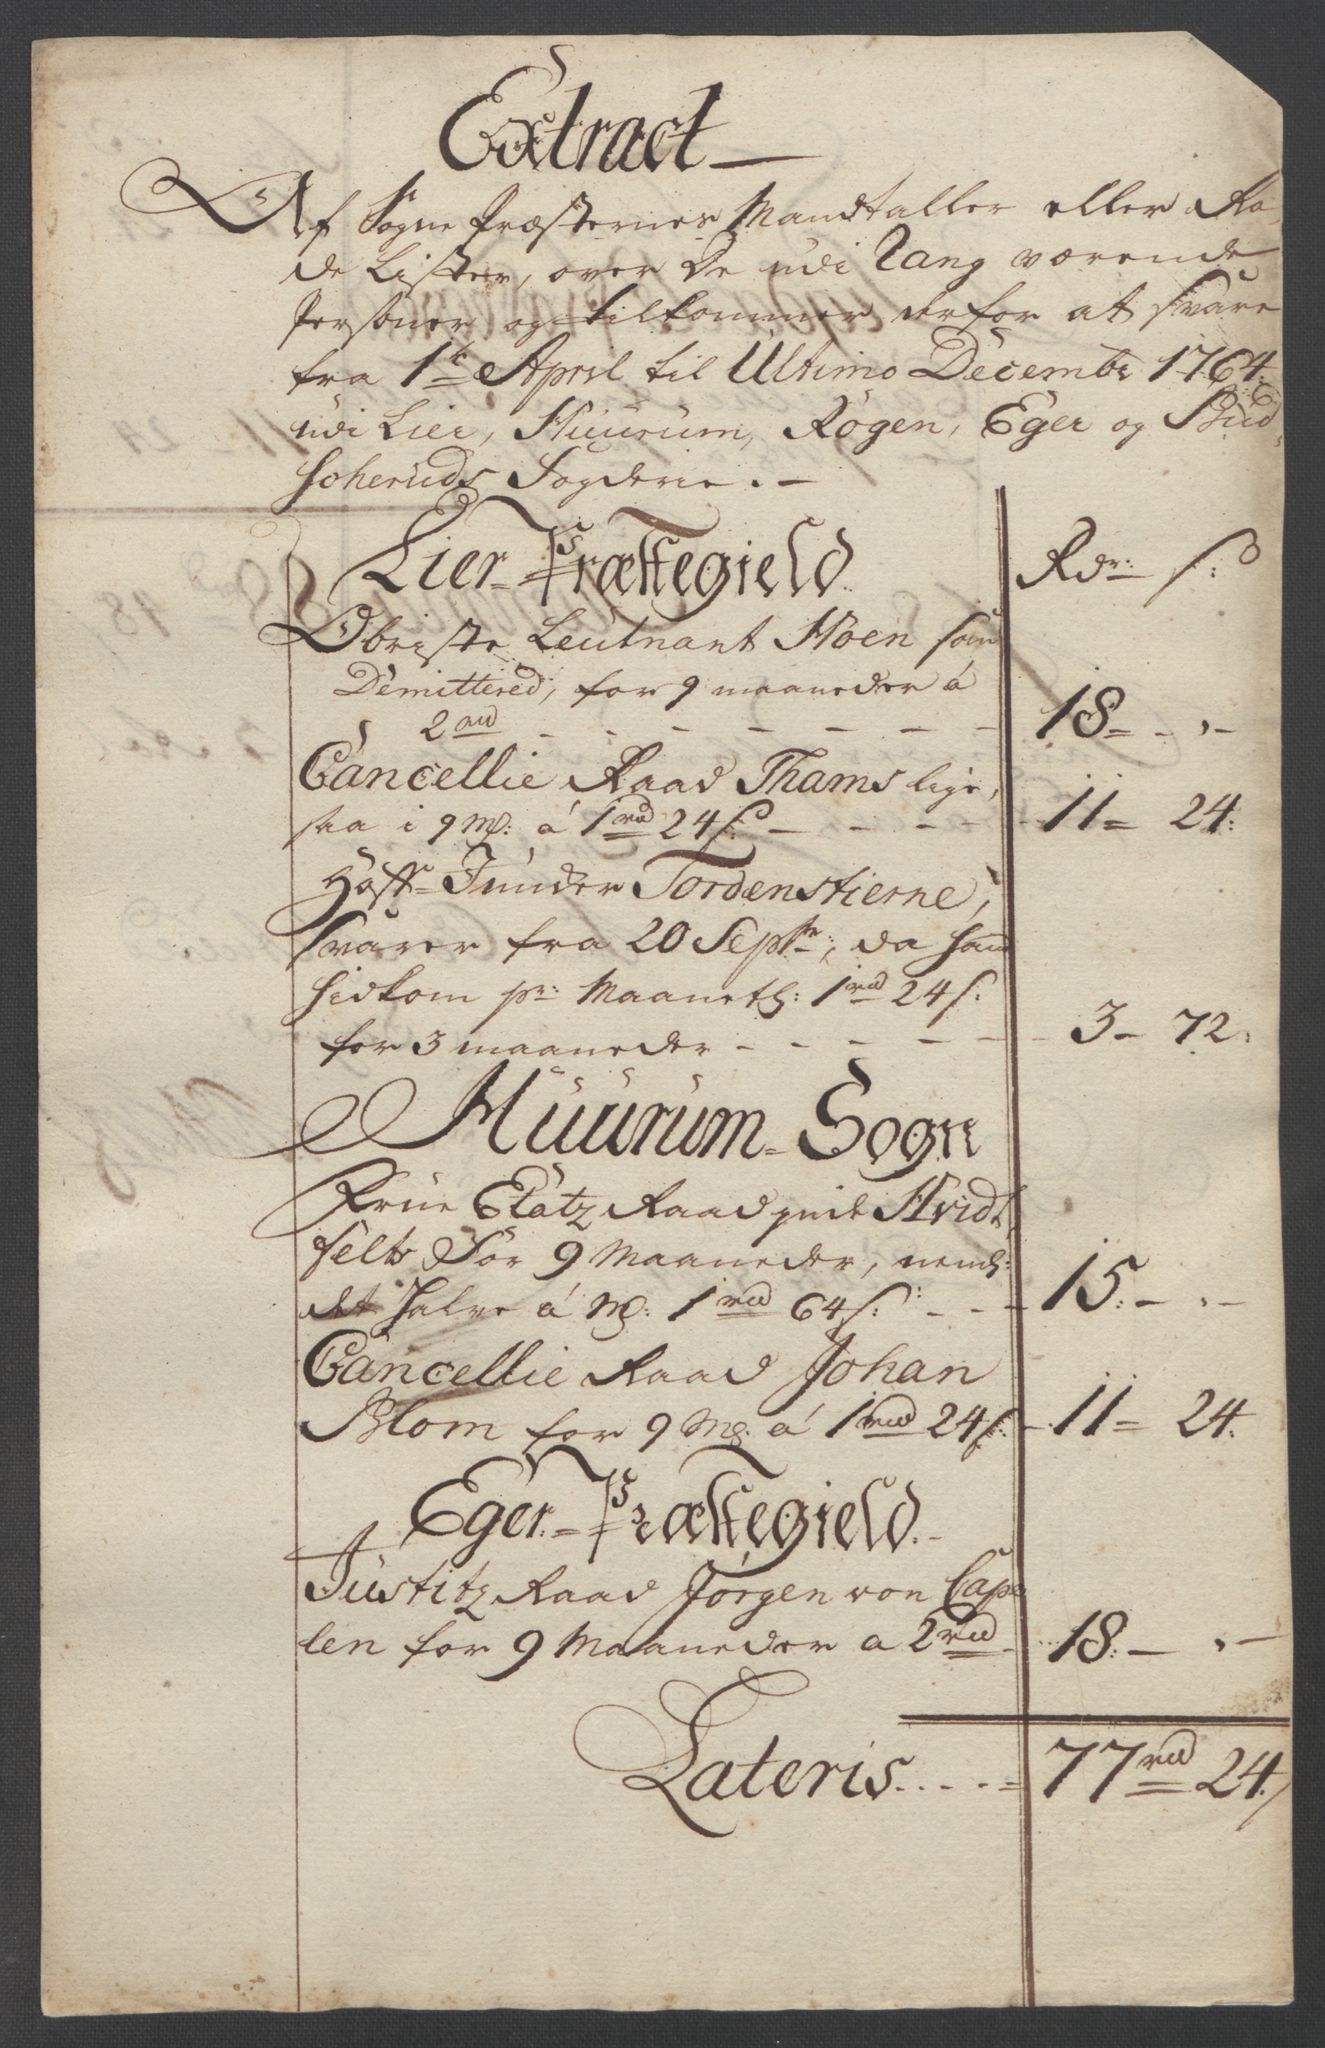 Extract
Af Sogne Præsternes Mandtaller eller Ro-
de Lister, over De udi Rang værende
Personer og tilkommer derfor at svare
fra 1te April til Ultimo Decembr 1764.
udi Lier, Huurum, Røgen, Eger og Bud-
scheruds Fogderie.
Lier Præstegield Rdr: s:
Obriste Leutnant Hoen som
Demittered, for 9 maaneder á
2rd - - - - - - - 18 - -
Cancellie Raad Thams lige,
saa i 9 M: á 1rd 24s: - - - - 11 = 24:
Hoff Juncker Tordenstierne,
svarer fra 20 Septbr:, da hand
hidkom pr: Maanetl: 1rd 24s:
for 3 maaneder - - - - - 3 - 72.
Huurum Sogn
Frue Etatz Raadinde Hvidt
felts for 9 Maaneder, neml:
det halve á M: 1rd 64s: - - - 15. - -
Cancellie Raad Johan
Blom for 9 M: á 1rd 24s: - 11 = 24.
Eger Præstegield.
Justitz Raad Jørgen von Cape
len for 9 Maaneder a 2rd - 18. - -
Lateris . . . . 77rd 24.s